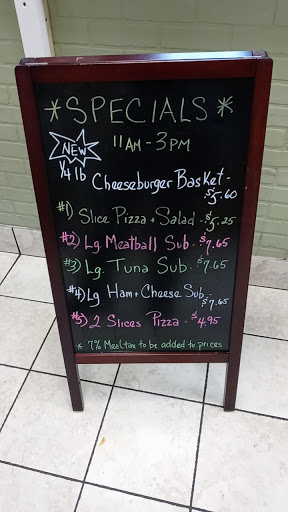 *SPECIALS*
NEW
11AM - 3PM
1/4 lb Cheeseburger Basket - $5.60
#1) Slice Pizza + Salad - $5.25
#2) Lg. Meatball Sub - $7.65
#3) Lg. Tuna Sub - $7.65
#4) Lg Ham + Cheese Sub - $7.65
#5) 2 Slices Pizza - $4.95
* 7% Meal tax to be added to prices